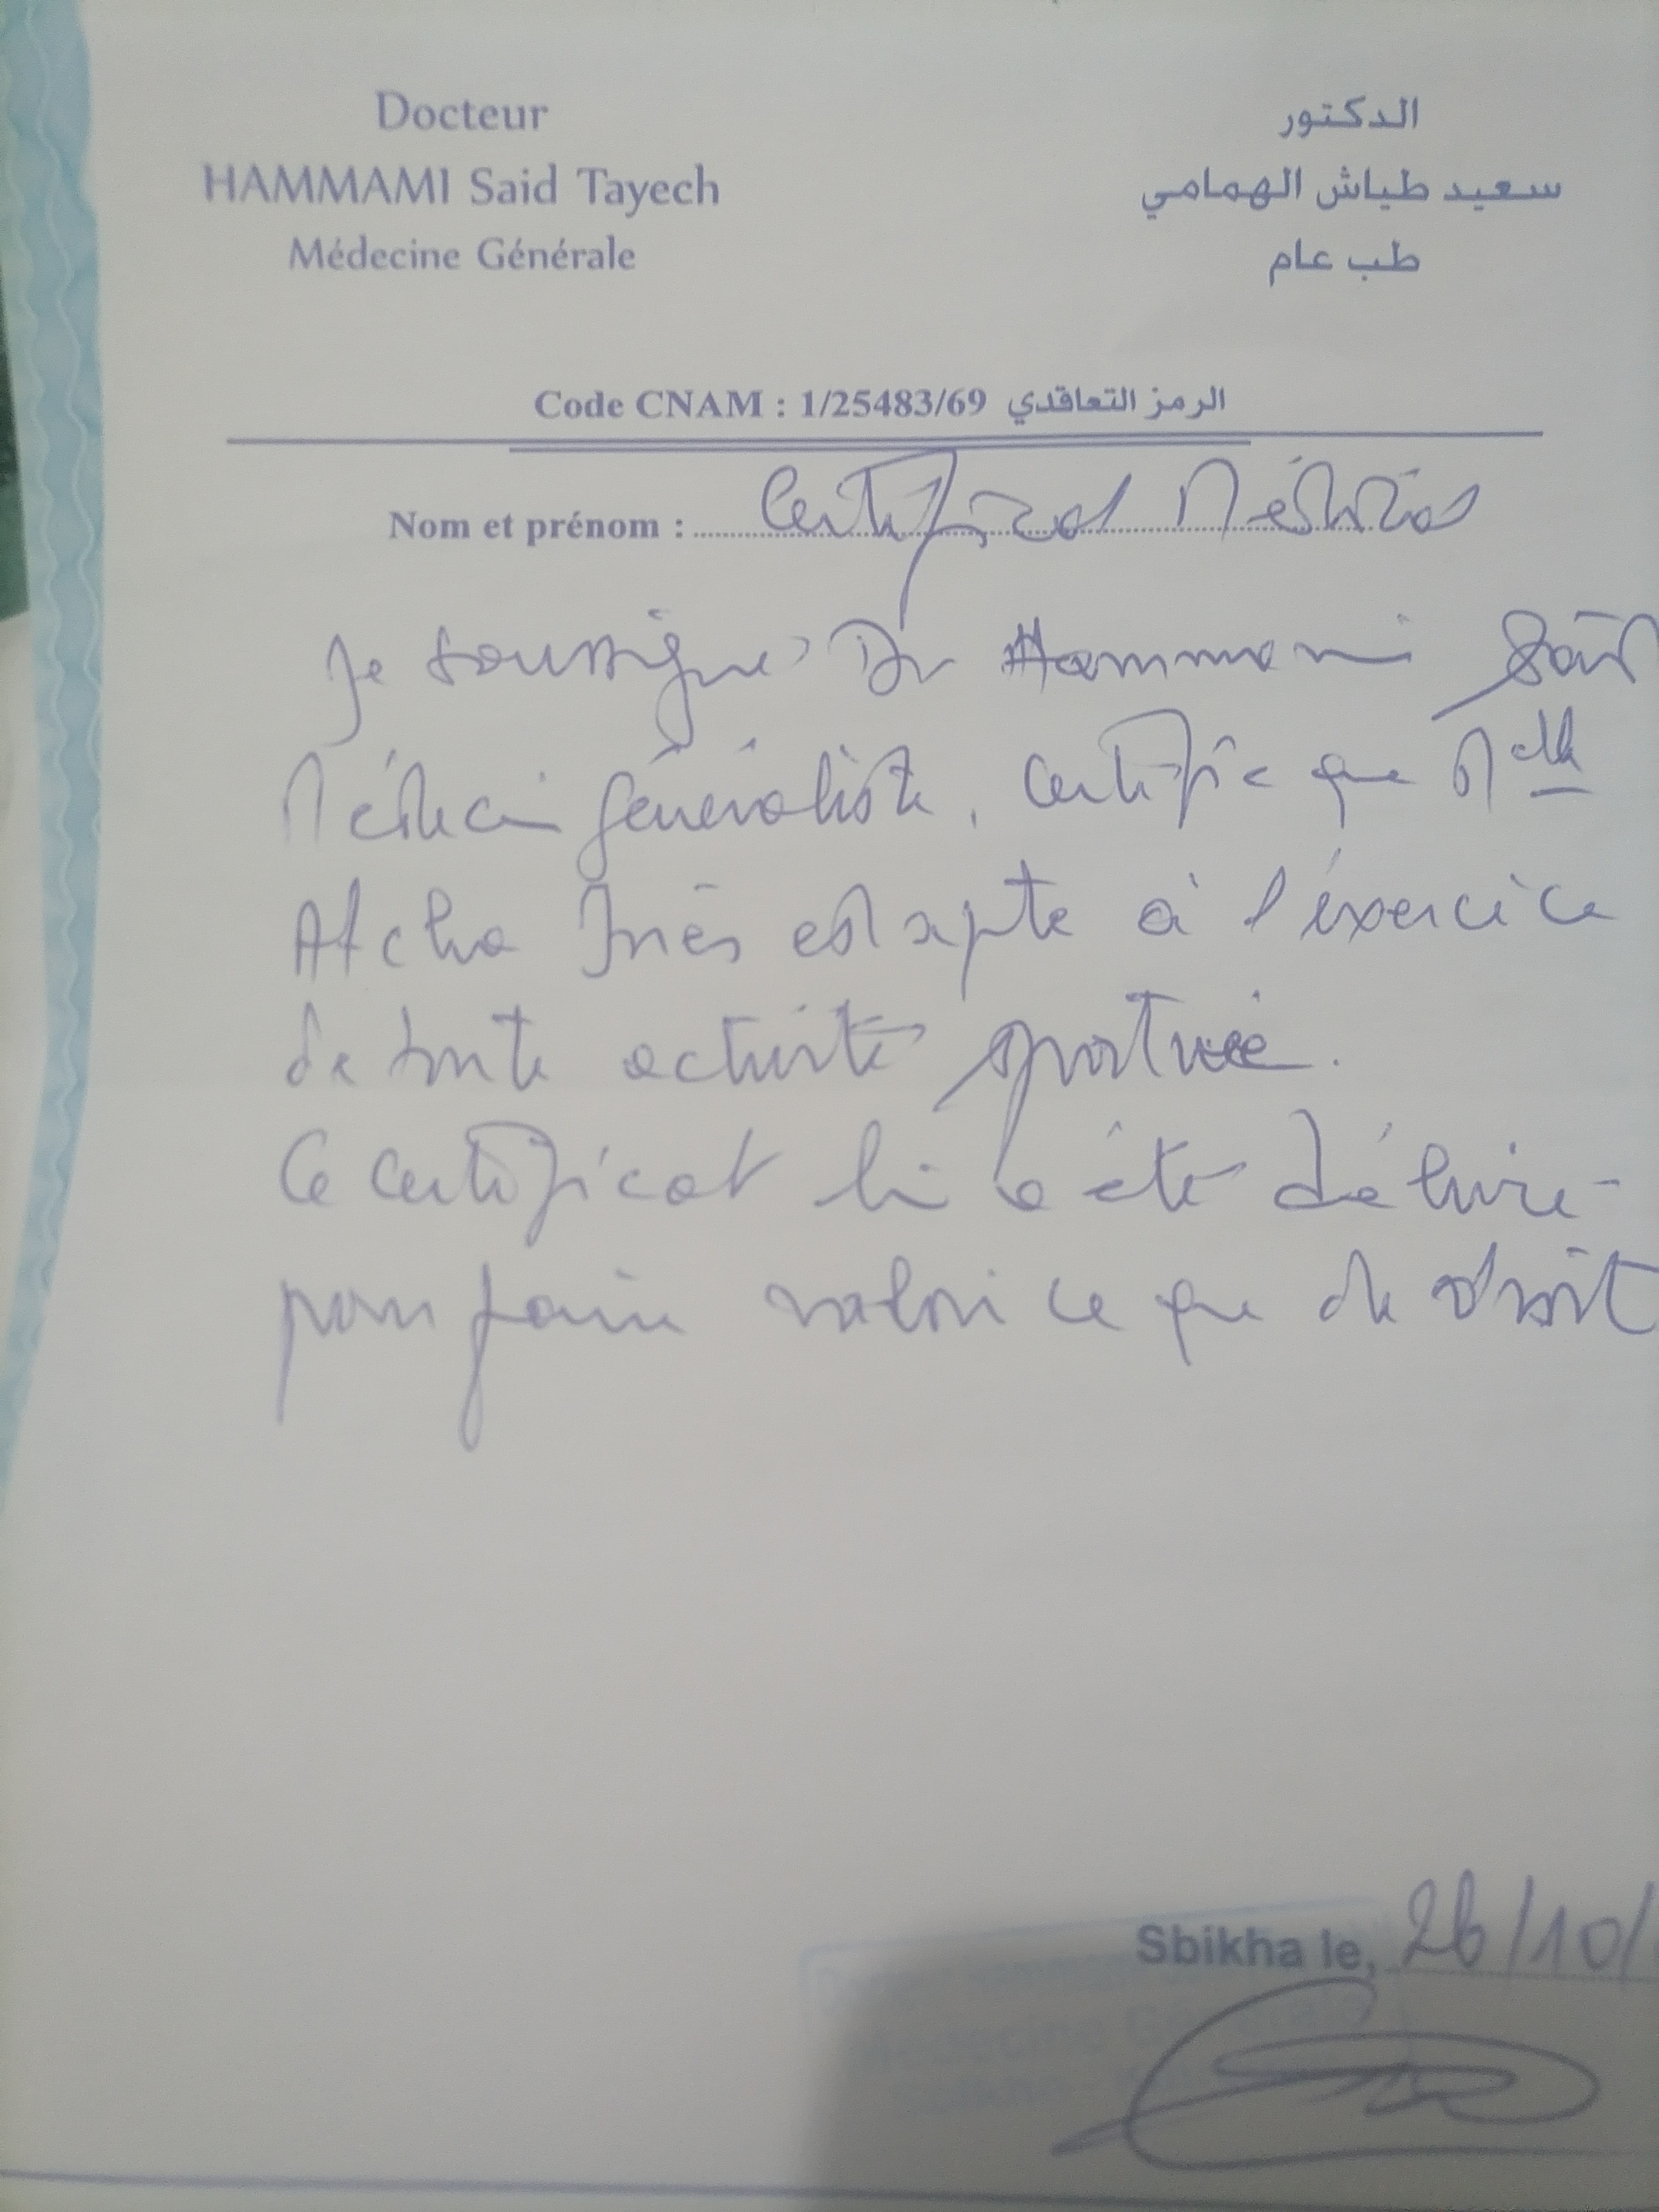 Docteur
HAMMAMI Said Tayech
Médecine Générale
الدكتور
سعيد طياش الهمامي
طب عام
Code CNAM : 1/25483/69 الرمز التعاقدي
Nom et prénom : Certificat Médical
Je soussigné Dr Hammami Said
Médecin généraliste, certifie que Melle
Atcha Inès est apte à l'éxercice
de toute activité sportive.
Ce certificat lui a été délivré
pour faire valoir ce que de droit
Sbikha le, 26/10/
Medecine Générale